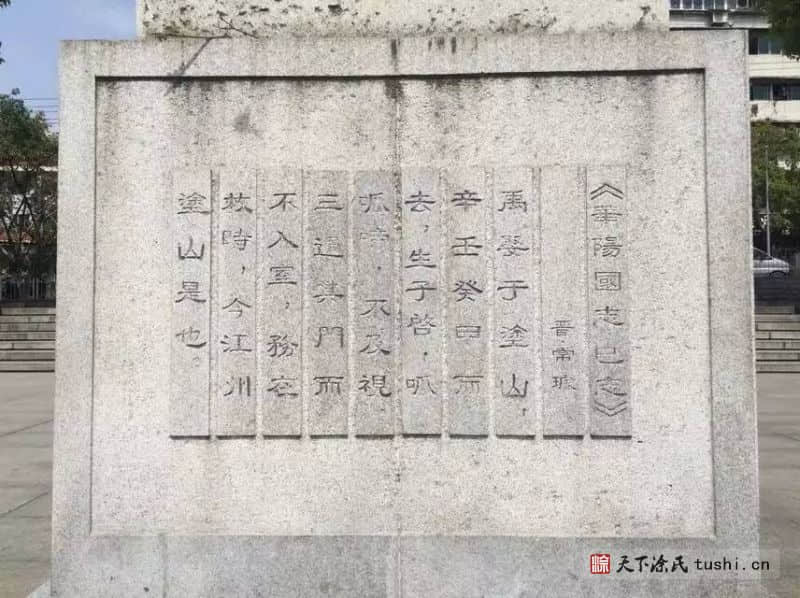 《華陽國志巴志》
晋常璩
禹娶于塗山，
辛壬癸甲而
去，生子啓，呱
呱啼，不及視，
三過其門而
不入室，務在
救時，今江州
塗山是也。
涂
天下涂氏 tushi.cn